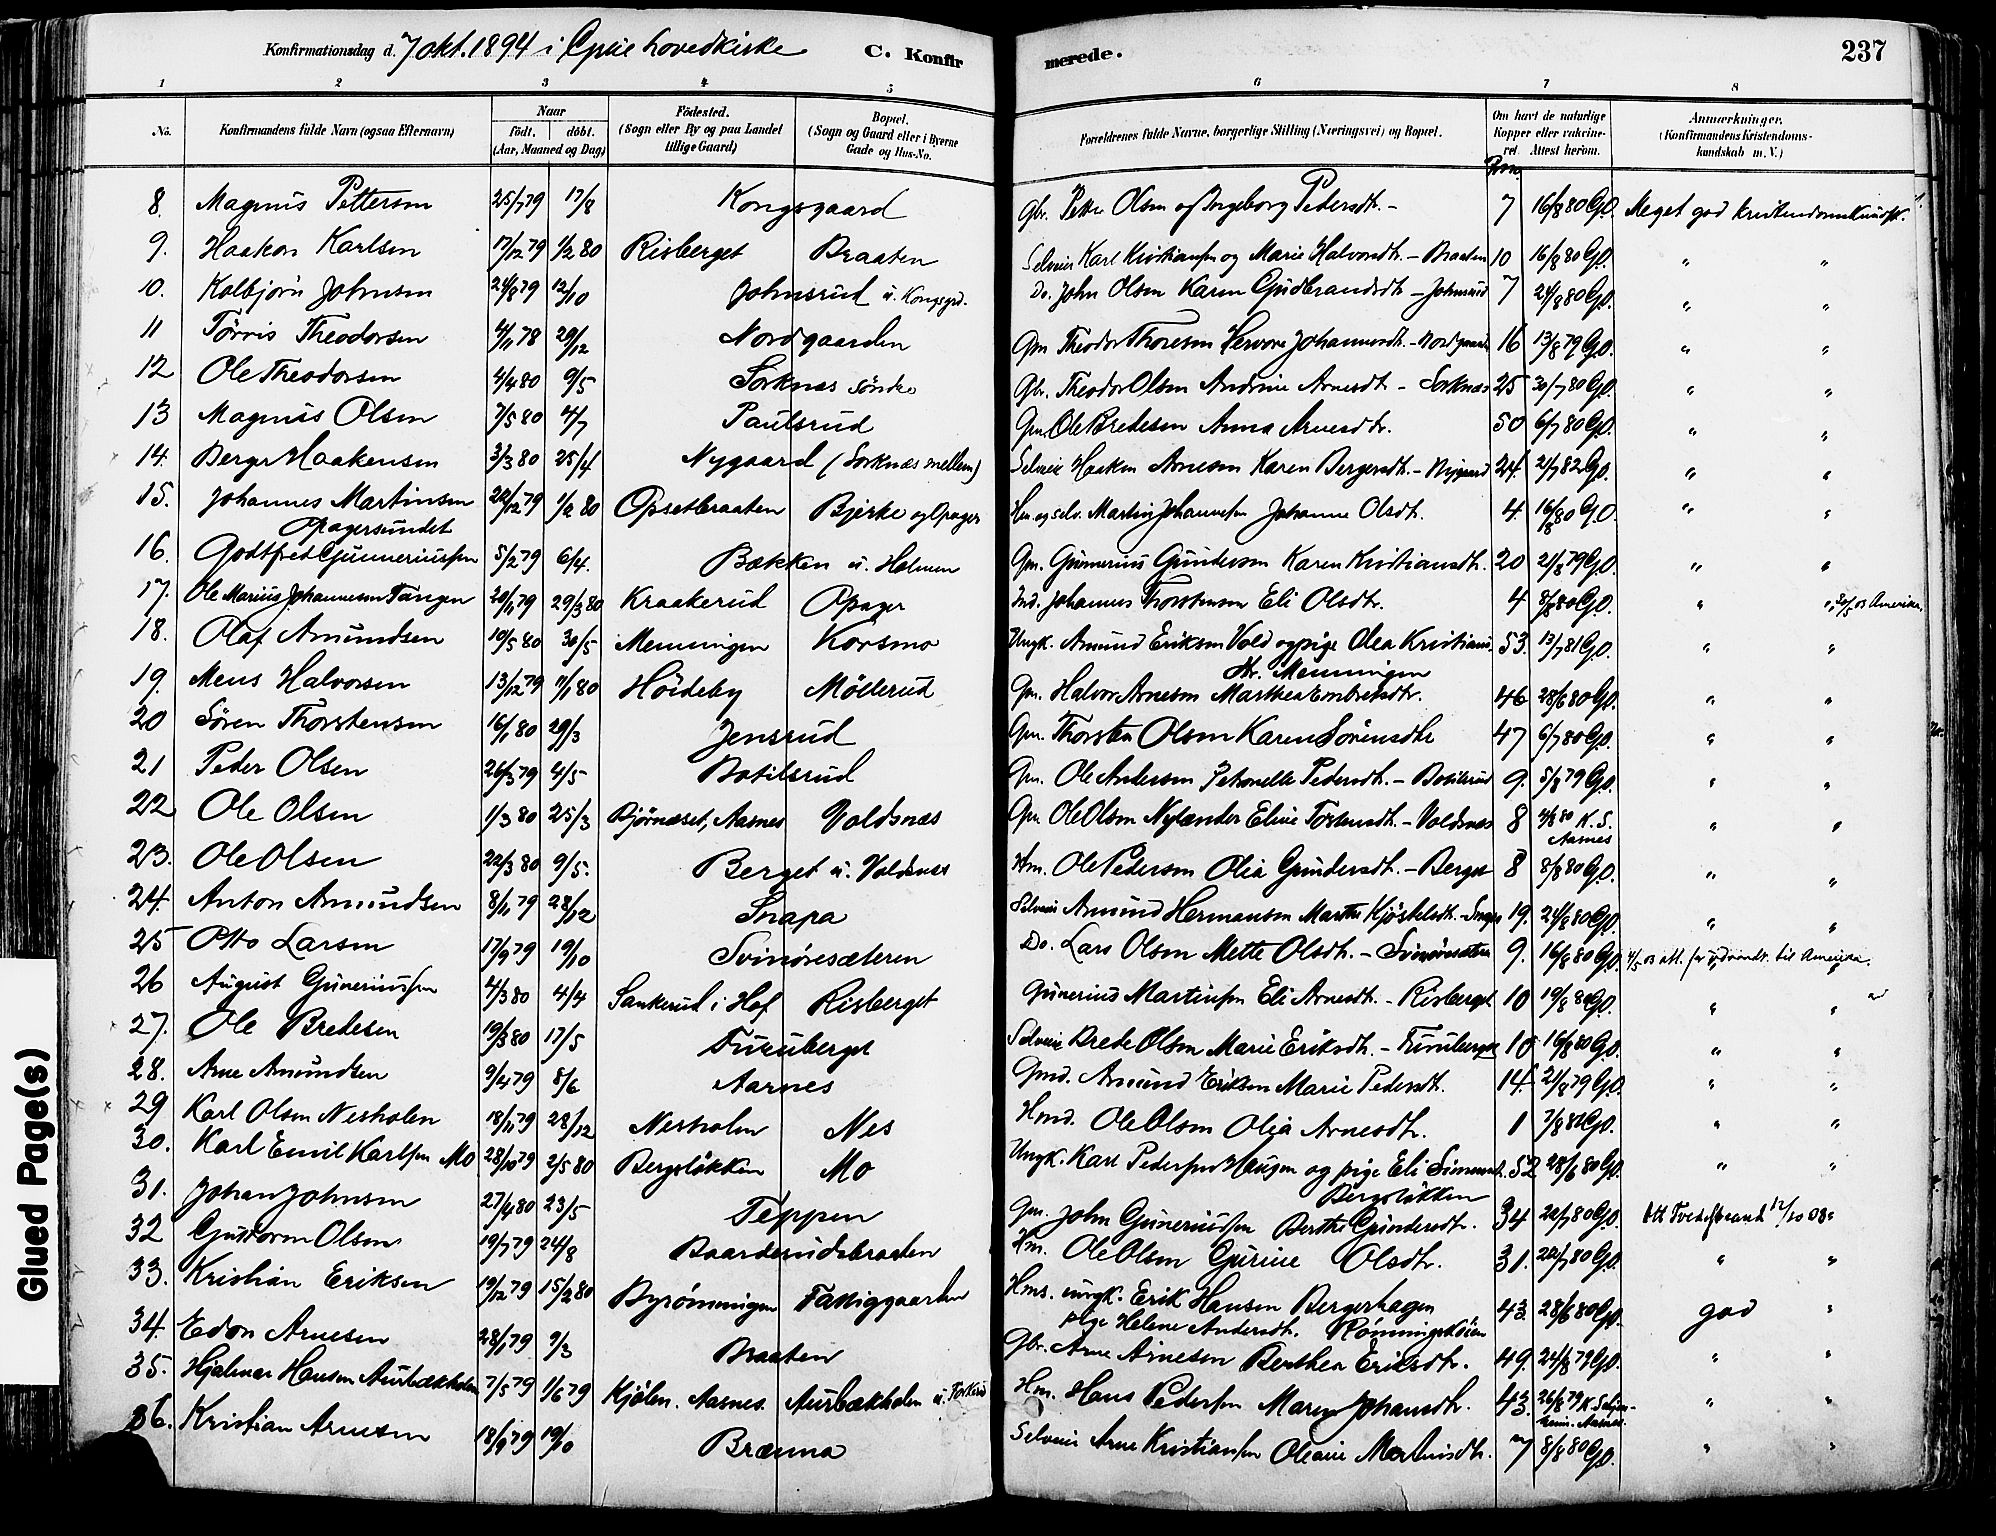 Konfirmationsdag d. 7 okt. 1894 i hovedkirke C. Konfirmerede. 237
1 2 3 4 5 6 7 8
No. Konfirmandens fulde Navn (ogsaa Efternavn) Naar födt. döbt. (Aar, Maaned og Dag) Födested. (Sogn eller By og paa Landet tillige Gaard) Bopæl. (Sogn og Gaard eller i Byerne Gade og Hus-No. Forældrenes fulde Navne, borgerlige Stilling (Næringsvei) og Bopæl. Om havt de naturlige Kopper eller vakcineret Attest herom. Anmærkninger. (Konfirmandens Kristendomskundskab m. V.)
8. Magnus Pettersen 25/7 79 17/8 Kongsgaard Gbr. Peter Olsen og Ingeborg Pedersdtr. - 7 16/8 80 G.O. Meget god kristendomskundsk.
9. Haakon Karlsen 17/12 79 1/2 80 Risberget Braaten Selveier Karl Kristiansen og Marie Halvorsdtr. - Braaten 10 16/8 80 G.O. " "
10. Kolbjørn Johnsen 24/8 79 12/10 Johnsrud u. Kongsgrd. Do. John Olsen Karen Gudbrandsdtr. - Johnsrud 7 24/8 80 G.O. " "
11 Tørris Theodorsen 4/11 78 29/12 Nordgaarden Gm Theodor Thoresen Johannesdtr. - Nordgaarden 16 13/8 79 G.O. " "
12 Ole Theodorsen 4/4 80 9/5 Sorknæs søndre Gbr. Theodor Olsen Andrine Arnesdtr - Sorknæs 25 30/7 80 G.O. " "
13 Magnus Olsen 7/5 80 4/7 Paulsrud Gm. Ole Bredesen Anna Arnesdtr. 50 6/7 80 G.O. " "
14. Berger Haakensen 3/3 80 25/4 Nygaard (Sorknæs mellem) Selveier Haaken Arnesen Karen Bergersdtr. - Nygaard 24. 2/7 82 G.O. " "
15. Johannes Martinsen Opagersundet 22/12 79 1/2 80 Opsetbraaten Bjerke og Opager Martin Johannesen Johanne Olsdtr. 4 16/8 80 G.O. " "
16. Godtfred Gunneriussen 5/2 79 6/4. Bækken u. Holmen Gm. Gunnerius Gundersen Karen Kristiansdtr. 20 21/8 79 G.O. " "
17. Ole Marius Johannesen Tangen 20/11 79 29/3 80 Kraakerud Opager Ind. Johannes Thorstensen Eli Olsdtr. 4 8/8 80 G.O. " " 03 Amerika.
18. Olaf Amundsen 10/5 80 30/5 Menningen Korsmo Ungk. Amund Eriksen Vold og pige Olea Kristiansdtr. Menningen 53. 13/7 81 G.O. " "
19. Mens Halvorsen 13/12 79 11/1 80 Höideby Möllerud Gm. Halvor Arnesen Marthea Embretsdtr. 46 28/6 80 G.O. " "
20 Sören Thorstensen 16/1 80 29/3 Jensrud Gm. Thorsten Olsen Karen Sörensdtr 47 6/7 80 G.O. " "
21 Peder Olsen 26/3 79 4/5 Botilsrud Gm. Ole Andersen Petronelle Pedersdtr. - Botilsrud 9. 5/8 79 G.O. " "
22 Ole Olsen 1/3 80 25/3 Bjørnæset, Aasnes Voldsnæs Gm Ole Olsen Nylænder Eline - Voldsnæs 8 K. S. Aasnes " "
23. Ole Olsen 22/3 80 9/5. Berget u. Voldsnæs Hm. Ole Pedersen Olia Gundersdtr. - Berget 8 8/8 80 G.O. " "
24. Anton Amundsen 8/11 79 28/12 Snapa Selveier Amund Hermansen Marthe Kjöstelsdtr. - Snapa 19. 24/8 80 G.O. " "
25 Otto Larsen 17/9 79 19/10 Svinöresæteren Do. Lars Olsen Mette Olsdtr. - Svinöresæteren 9. 16/8 80 G.O. 4/5 03 att. for udvandr. til Amerika.
26 August Guneriussen 4/3 80 4/4 Sankerud i Hof Risberget Gunerius Martinsen Eli Arnesdtr. - Risberget 10 19/8 80 G.O. " "
27. Ole Bredesen 19/3 80 17/5 Furuberget Selveier Brede Olsen Marie Eriksdtr. - Furuberget 10 16/8 80 G.O. " "
28. Arne Amundsen 9/4 79 8/6 Aarnes Gmd. Amund Eriksen Marie Pedersdtr. 14. 21/8 79 G.O. " "
29 Karl Olsen Nesholen 18/11 79 28/12 Nesholen Nes Hmd. Ole Olsen Olia Arnesdtr. 1 G.O. " "
30. Karl Emil Karlsen Mo 28/10 79 2/5 80 Bergsløkken Mo Ungk. Karl Pedersen Haugen og pige Eli Simensdtr. Bergsløkken 52 28/6 80 G.O. " "
31. Johan Johnsen 27/4 80 23/5 Teppen Gm. John Guneriussen Berthe Gundersdtr. 34 22/7 80 G.O. Att 12/10 08
32 Guttorm Olsen 19/7 79 24/8 Baarderudsbraaten Hm. Ole Olsen Gurine Olsdtr. 31. 22/7 80 G.O. " "
33. Kristian Eriksen 19/12 79 15/2 80 Byrömmingen Fattiggaarden Hms. ungk. Erik Hansen Bergerhagen pige Helene Andersdtr. Römmingskoien 43. 28/6 80 G.O. god "
34. Edon Arnesen 28/1 79 9/3 Braaten Gbr. Arne Arnesen Berthea Eriksdtr. 49. 24/8 79 G.O. " "
35. Hjalmar Hansen Aurbækholen 7/5 79 1/6 79 Kjölen. Aasnes. Aurbækholen u. Hm. Hans Pedersen Maren Johansdtr. 43. 26/8 79 K. Aasnes " "
36. Kristian Arnesen 18/9 79 19/10 Brænna Selveier Arne Kristiansen Oleane Martinsdtr. 7 8/8 80 G.O. " "
Glued Page(s)